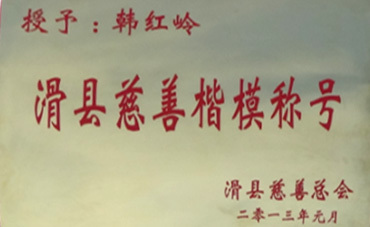 授予：韩红岭
滑县慈善楷模称号
滑县慈善总会
二零一三年元月